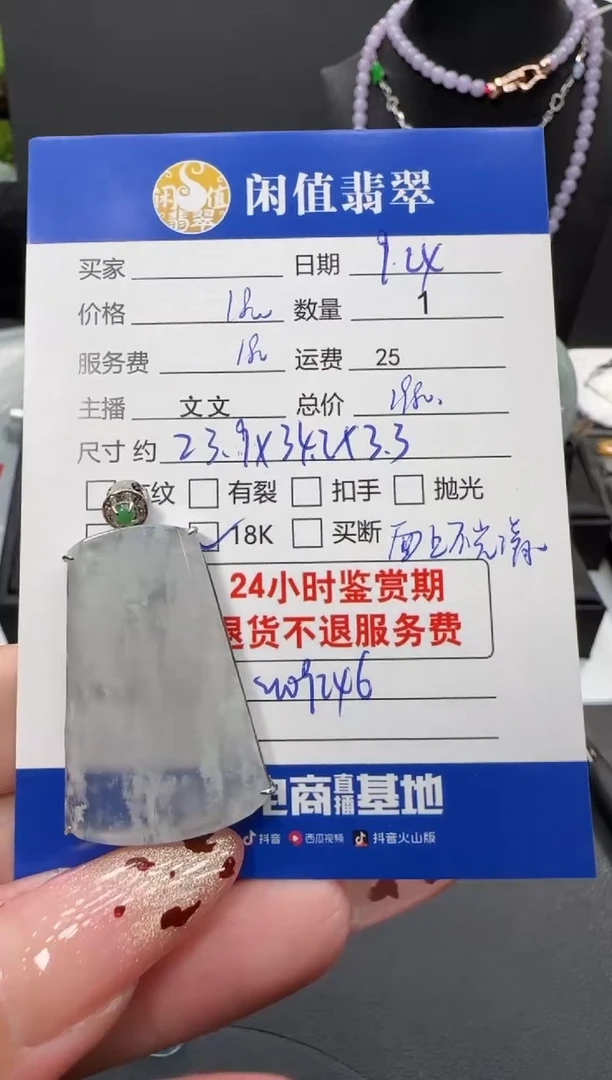 闲值翡翠
闲值翡翠
买家 日期 9.24
价格 数量 1
服务费 运费 25
主播 文文 总价
尺寸 约 23.9X34.2X3.3
纹 有裂 扣手 抛光
18K 买断
24小时鉴赏期
退货不退服务费
电商直播基地
抖音 西瓜视频 抖音火山版